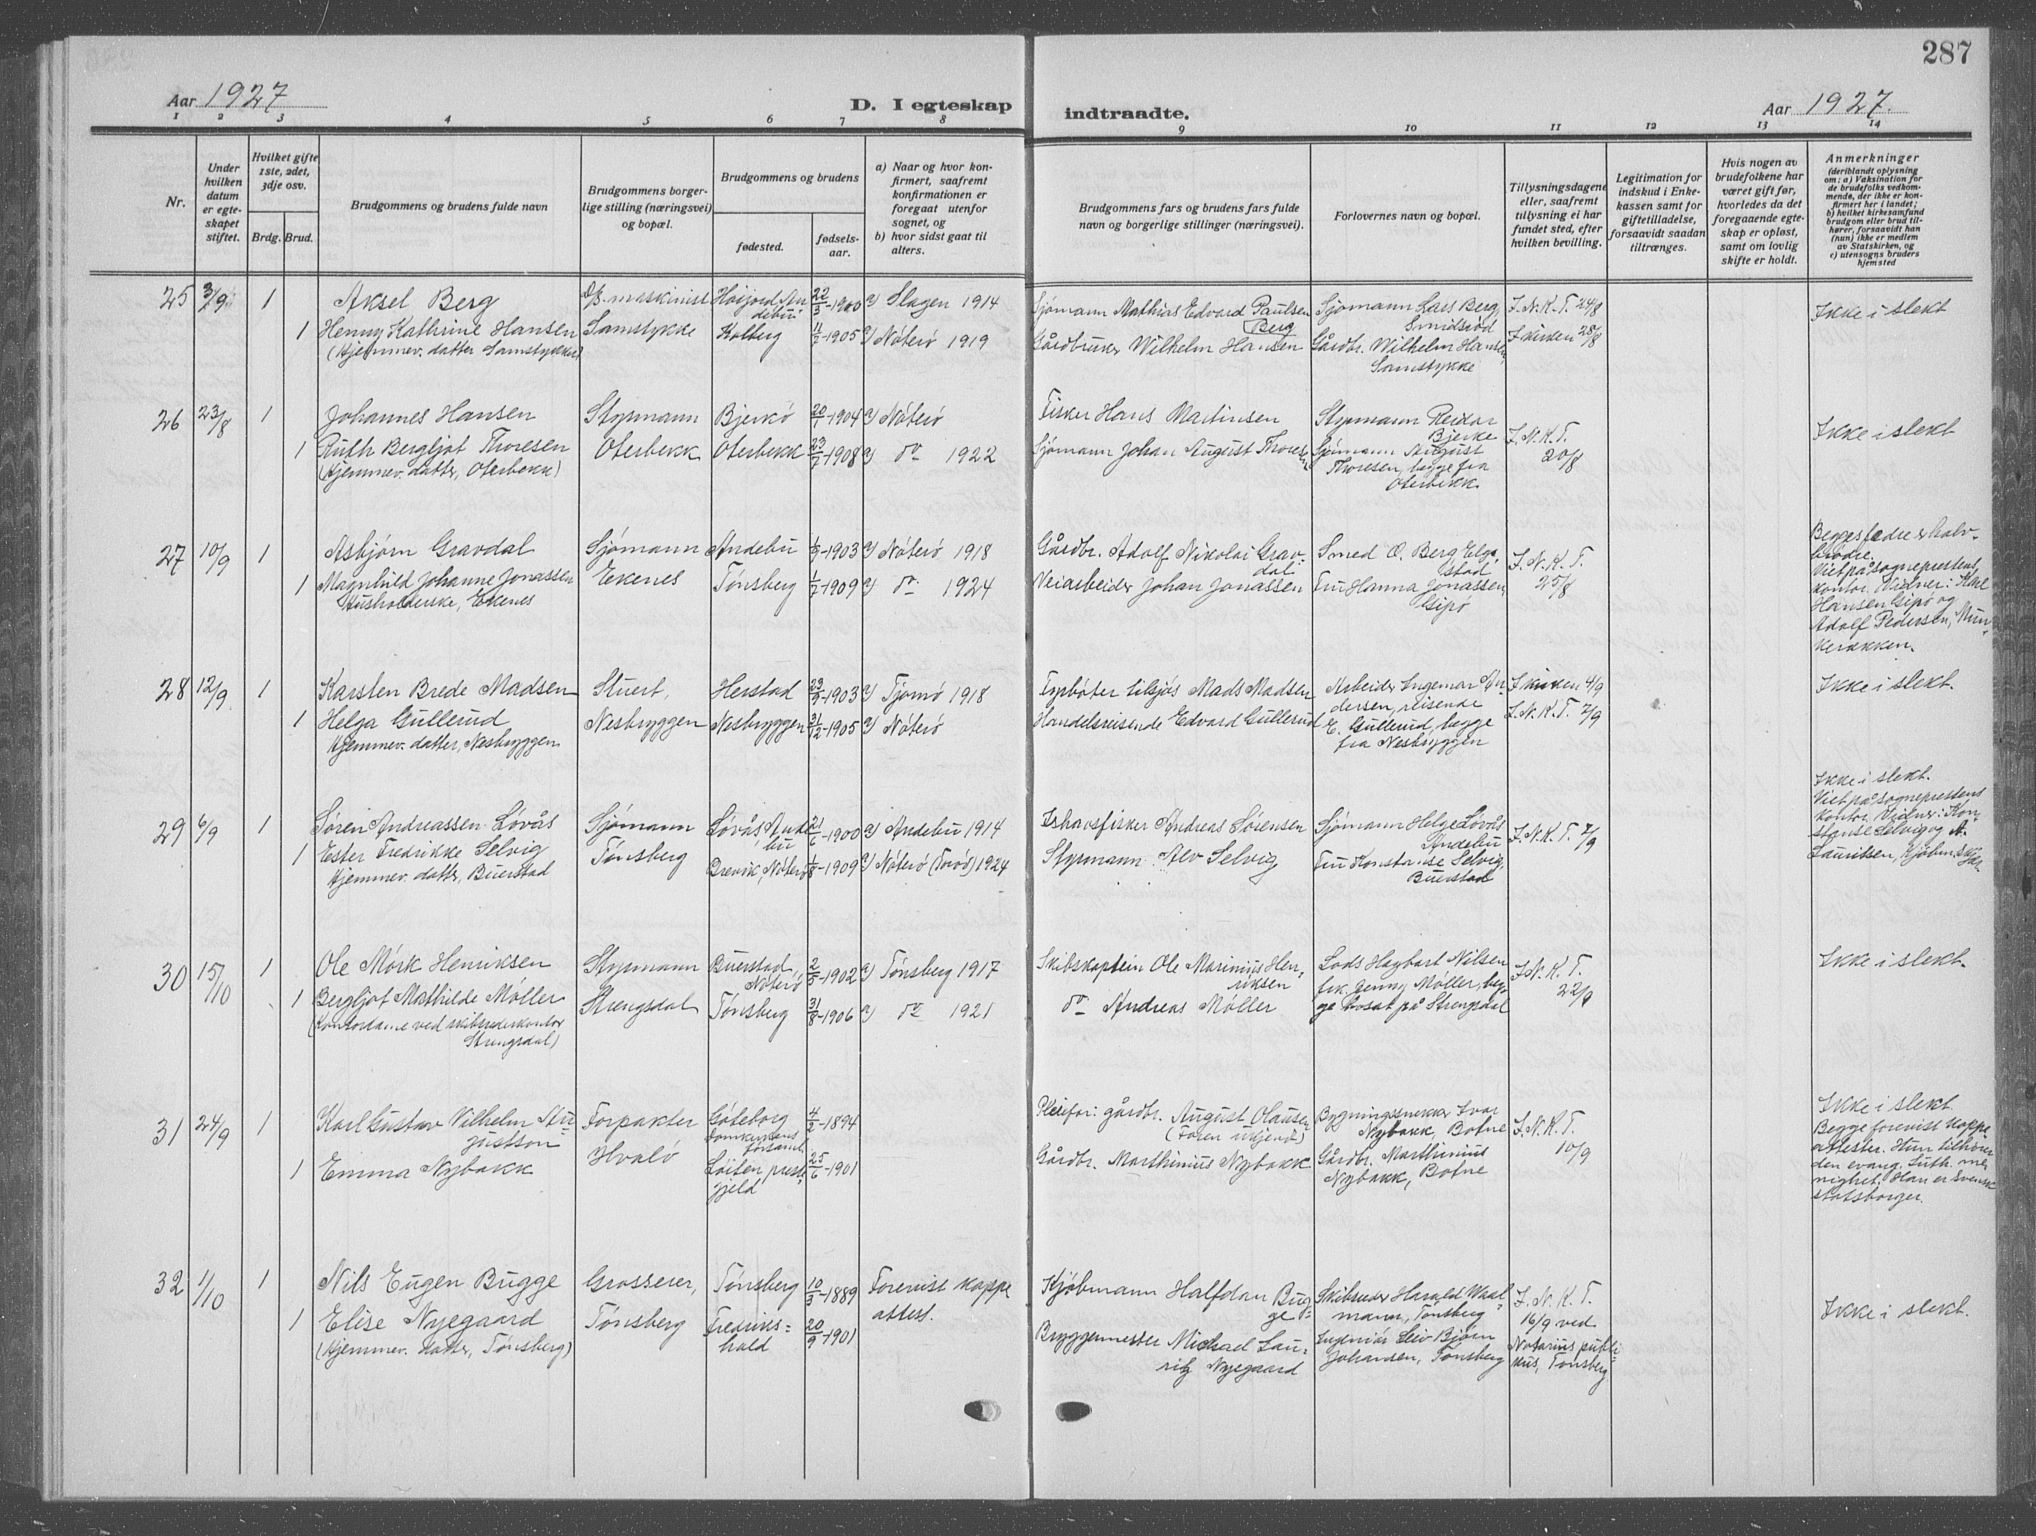 287
Aar 1927
D. I egteskap
indtraadte.
Aar 1927.
1 2 3 4 5 6 7 8 9 10 11 12 13 14
Nr.
Under hvilken datum er egteskapet stiftet.
Hvilket gifte 1ste, 2det, 3dje osv.
Brdg. Brud.
Brudgommens og brudens fulde navn
Brudgommens borgerlige stilling (næringsvei) og bopæl.
Brudgommens og brudens
fødested.
fødselsaar.
a) Naar og hvor konfirmert, saafremt konfirmationen er foregaat utenfor sognet, og
b) hvor sidst gaat til alters.
Brudgommens fars og brudens fars fulde navn og borgerlige stillinger (næringsvei).
Forlovernes navn og bopæl.
Tillysningsdagene eller, saafremt tillysning ei har fundet sted, efter hvilken bevilling.
Legitimation for indskud i Enkekassen samt for giftetilladelse, forsaavidt saadan tiltrænges.
Hvis nogen av brudefolkene har været gift før, hvorledes da det foregaaende egteskap er opløst, samt om lovlig skifte er holdt.
Anmerkninger (deriblandt oplysning om: a) Vaksination for de brudefolks vedkommende, der ikke er konfirmert her i landet; b) hvilket kirkesamfund brudgom eller brud tilhører, forsaavidt han (hun) ikke er medlem av Statskirken, og c) utensogns bruders hjemsted
25 3/9 1 Aksel Berg maskinist Høijord Andebu 22/3-1900 a) Slagen 1914 Sjømann Mathias Edvard Paulsen Berg Sjømann Lars Berg, Smidsrød I. N. K. T. 24/8 Ikke i slekt
1 Henny Kathrine Hansen (Hjemmev. datter Samstykke) Samstykke Kolberg 11/7-1905 a) Nøterø 1919 Gårdbruker Wilhelm Hansen Gårdbr. Wilhelm Hansen, Samstykke I kirken 28/8
26 23/8 1 Johannes Hansen Styrmann Bjerkø 20/1-1904 a) Nøterø Fisker Hans Martinsen Styrmann Reidar Bjerke I. N. K. T. 20/8 Ikke i slekt
1 Ruth Bergljot Thoresen (Hjemmev. datter, Oterbekk) Oterbekk Oterbekk 23/7-1908 a) do 1922 Sjømann Johan August Thoresen Sjømann August Thoresen, begge fra Oterbekk
27 10/9 1 Asbjørn Gravdal Sjømann Andebu 1/9-1903 a) Nøterø 1918 Gårdbr. Adolf Nikolai Gravdal Smed O. Berg Elgestad I. N. K. T. 25/8 Begges fædre er halvbrødre. Viet på sogneprestens kontor. Vidner: Karl Hansen Gipø og Adolf Pedersen, Munkerekken.
1 Magnhild Johanne Jonassen Husholderske, Ekenes Ekenes Tønsberg 1/7-1909 a) do 1924 Veiarbeider Johan Jonassen Fru Hanna Jonassen, Gipø
28 12/9 1 Karsten Brede Madsen Stuert, Herstad 23/9-1903 a) Tjømø 1918 Fyrbøter tilsjøs Mads Madsen Arbeider Ingemar Andersen, reisende I kirken 4/9 Ikke i slekt.
1 Helga Gullerud Hjemmev. datter, Nesbryggen Nesbryggen Nesbryggen 31/12-1905 a) Nøterø Handelsreisende Edvard Gullerud E. Gullerud, begge fra Nesbryggen I. N. K. T. 7/9
29 6/9 1 Søren Andreassen Løvås Sjømann Løvås, Andebu 21/6-1900 a) Andebu 1914 Ishavsfisker Andreas Sørensen Sjømann Helge Løvås Andebu I. N. K. T. 2/9 Ikke i slekt. Viet på sogneprestens kontor. Vidner: Konstanse Selvig og A. Lauritsen, Kjøbm.
1 Ester Fredrikke Selvig Hjemmev. datter, Buerstad Tønsberg Brevik, Nøterø 1/8-1909 a) Nøterø (Torød) 1924 Styrmann Alv Selvig Fru Konstanse Selvig, Buerstad
30 15/10 1 Ole Mørk Henriksen Styrmann Buerstad, Nøterø 2/5-1902 a) Tønsberg 1917 Skibskaptein Ole Marinius Henriksen Lods Hagbart Nilsen I. N. K. T. 22/9 Ikke i slekt.
1 Bergljot Mathilde Møller (Kontordame ved skibsrederkontor Strengsdal) Strengsdal Tønsberg 31/8-1906 a) do 1921 do Andreas Møller frk. Jenny Møller, begge bosat på Strengsdal
31 24/9 1 Karl Gustav Vilhelm Augustson Forpakter Gøteborg Domkyrkans forsaml. 4/2-1894 Pleiefar: gårdbr. August Olausen (Faren ukjend) Bygningssnekker Ivar Nybakk, Botne I. N. K. T. 10/9 Ikke i slekt. Begge forevist koppeattester. Hun tilhører den evang. luth. menighet. Han er svensk statsborger.
1 Emma Nybakk Hvalø Løiten prestegjeld 25/6-1901 Gårdbr. Marthinius Nybakk Gårdbr. Marthinius Nybakk, Botne
32 1/10 1 Nils Eugen Bugge Grosserer, Tønsberg 10/3-1889 Forevist koppeattest. Kjøbmann Halfdan Bugge Skibsreder Harald Waalmann, Tønsberg I. N. K. T. 16/9 ved Notarius publikus, Tønsberg Ikke i slekt.
1 Elise Nyegaard (Hjemmev. datter, Tønsberg) Tønsberg Fredrikshald 20/9-1901 Bryggermester Michael Lauritz Nyegaard Ingeniør Leiv Bjørn Johansen, Tønsberg